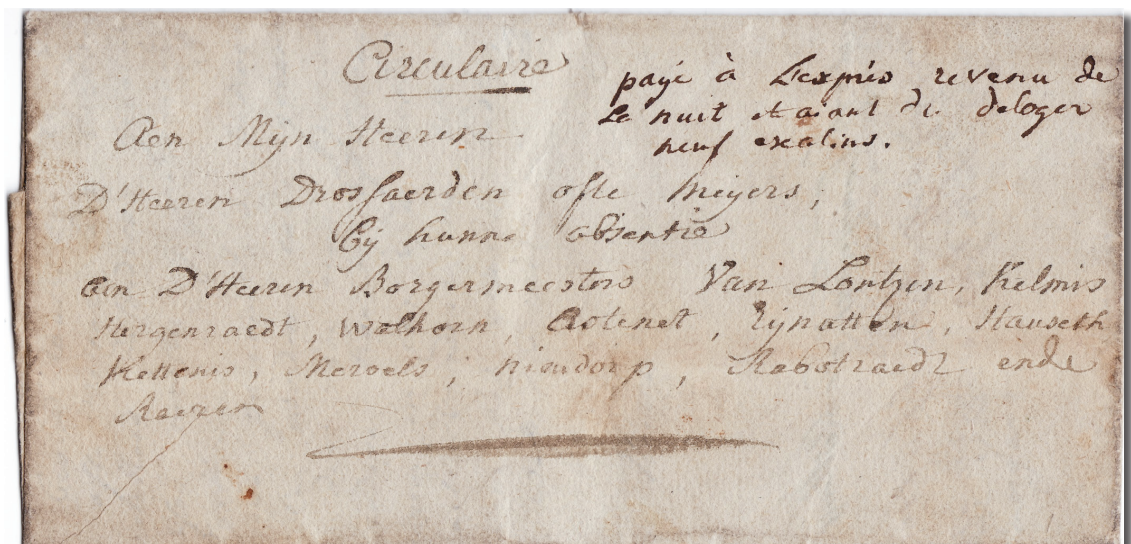 Circulaire
payé à L'exprés revenu de
Le nuit et aiant du deloger
neuf escalins.
Aen Mijn Heeren
D'Heeren Drossaerden ofte meijers,
bij hunne absentie
aen D'Heeren Borgermeesters Van Lontzen, Kelmis
Hergenraedt, Walhorn, Astenet, Eijnatten, Hauseth
Kettenis, Merols, nieudorp, Rabotraedt ende
Raeren